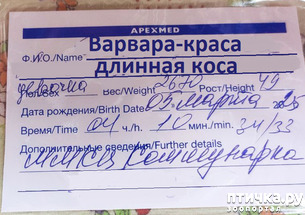 APEXMED
Ф.И.О./Name Варвара-краса
длинная коса
Пол/Sex девочка Вес/Weight 2670 Рост/Height 49
Дата рождения/Birth Date 05 марта
Время/Time 04 ч./h. 10 мин./min. 34/33
Дополнительные сведения/Further details
ММКЦ Коммунарка
птичка.ру
зоопортал